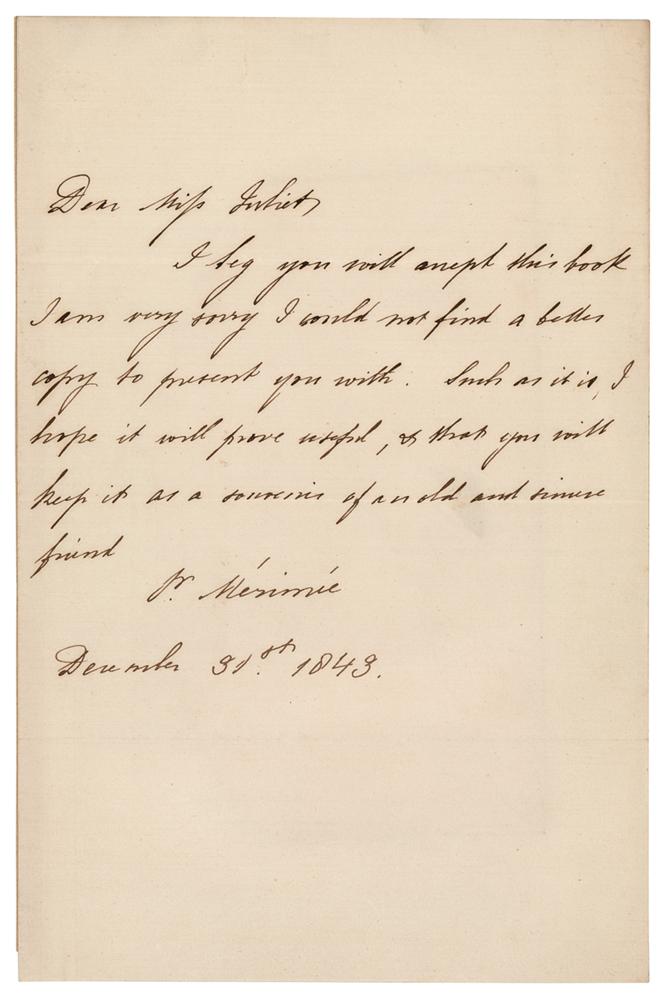 Dear Miss Juliet
I beg you will accept this book
I am very sorry I could not find a better
copy to present you with. Such as it is, I
hope it will prove useful, & that you will
keep it as a souvenir of an old and sincere
friend
Pr. Mérimée
December 31.st 1843.